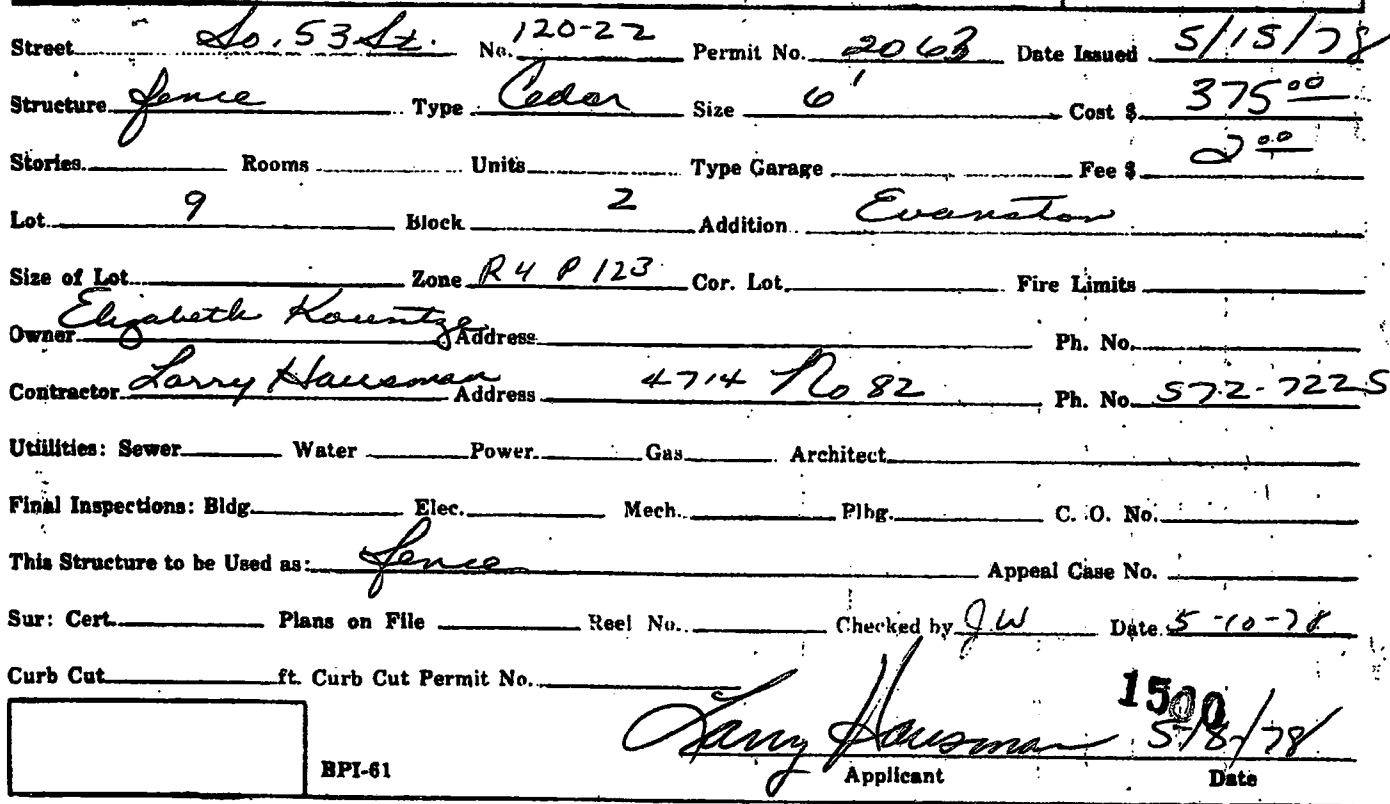 Street So. 53 St. No. 120-22 Permit No. 2063 Date Issued 5/15/78
Structure fence Type Cedar Size 6' Cost $ 375.00
Stories Rooms Units Type Garage Fee $ 2.00
Lot 9 Block 2 Addition Evanston
Size of Lot Zone R4 P 123 Cor. Lot Fire Limits
Owner Elizabeth Kountze Address Ph. No.
Contractor Larry Hausman Address 4714 No 82 Ph. No. 572-7225
Utiilities: Sewer Water Power Gas Architect
Final Inspections: Bldg. Elec. Mech. Plbg. C. O. No.
This Structure to be Used as: fence Appeal Case No.
Sur: Cert. Plans on File Reel No. Checked by JW Date 5-10-78
Curb Cut ft. Curb Cut Permit No.
1500
Larry Hausman 5/8/78
BPI-61 Applicant Date